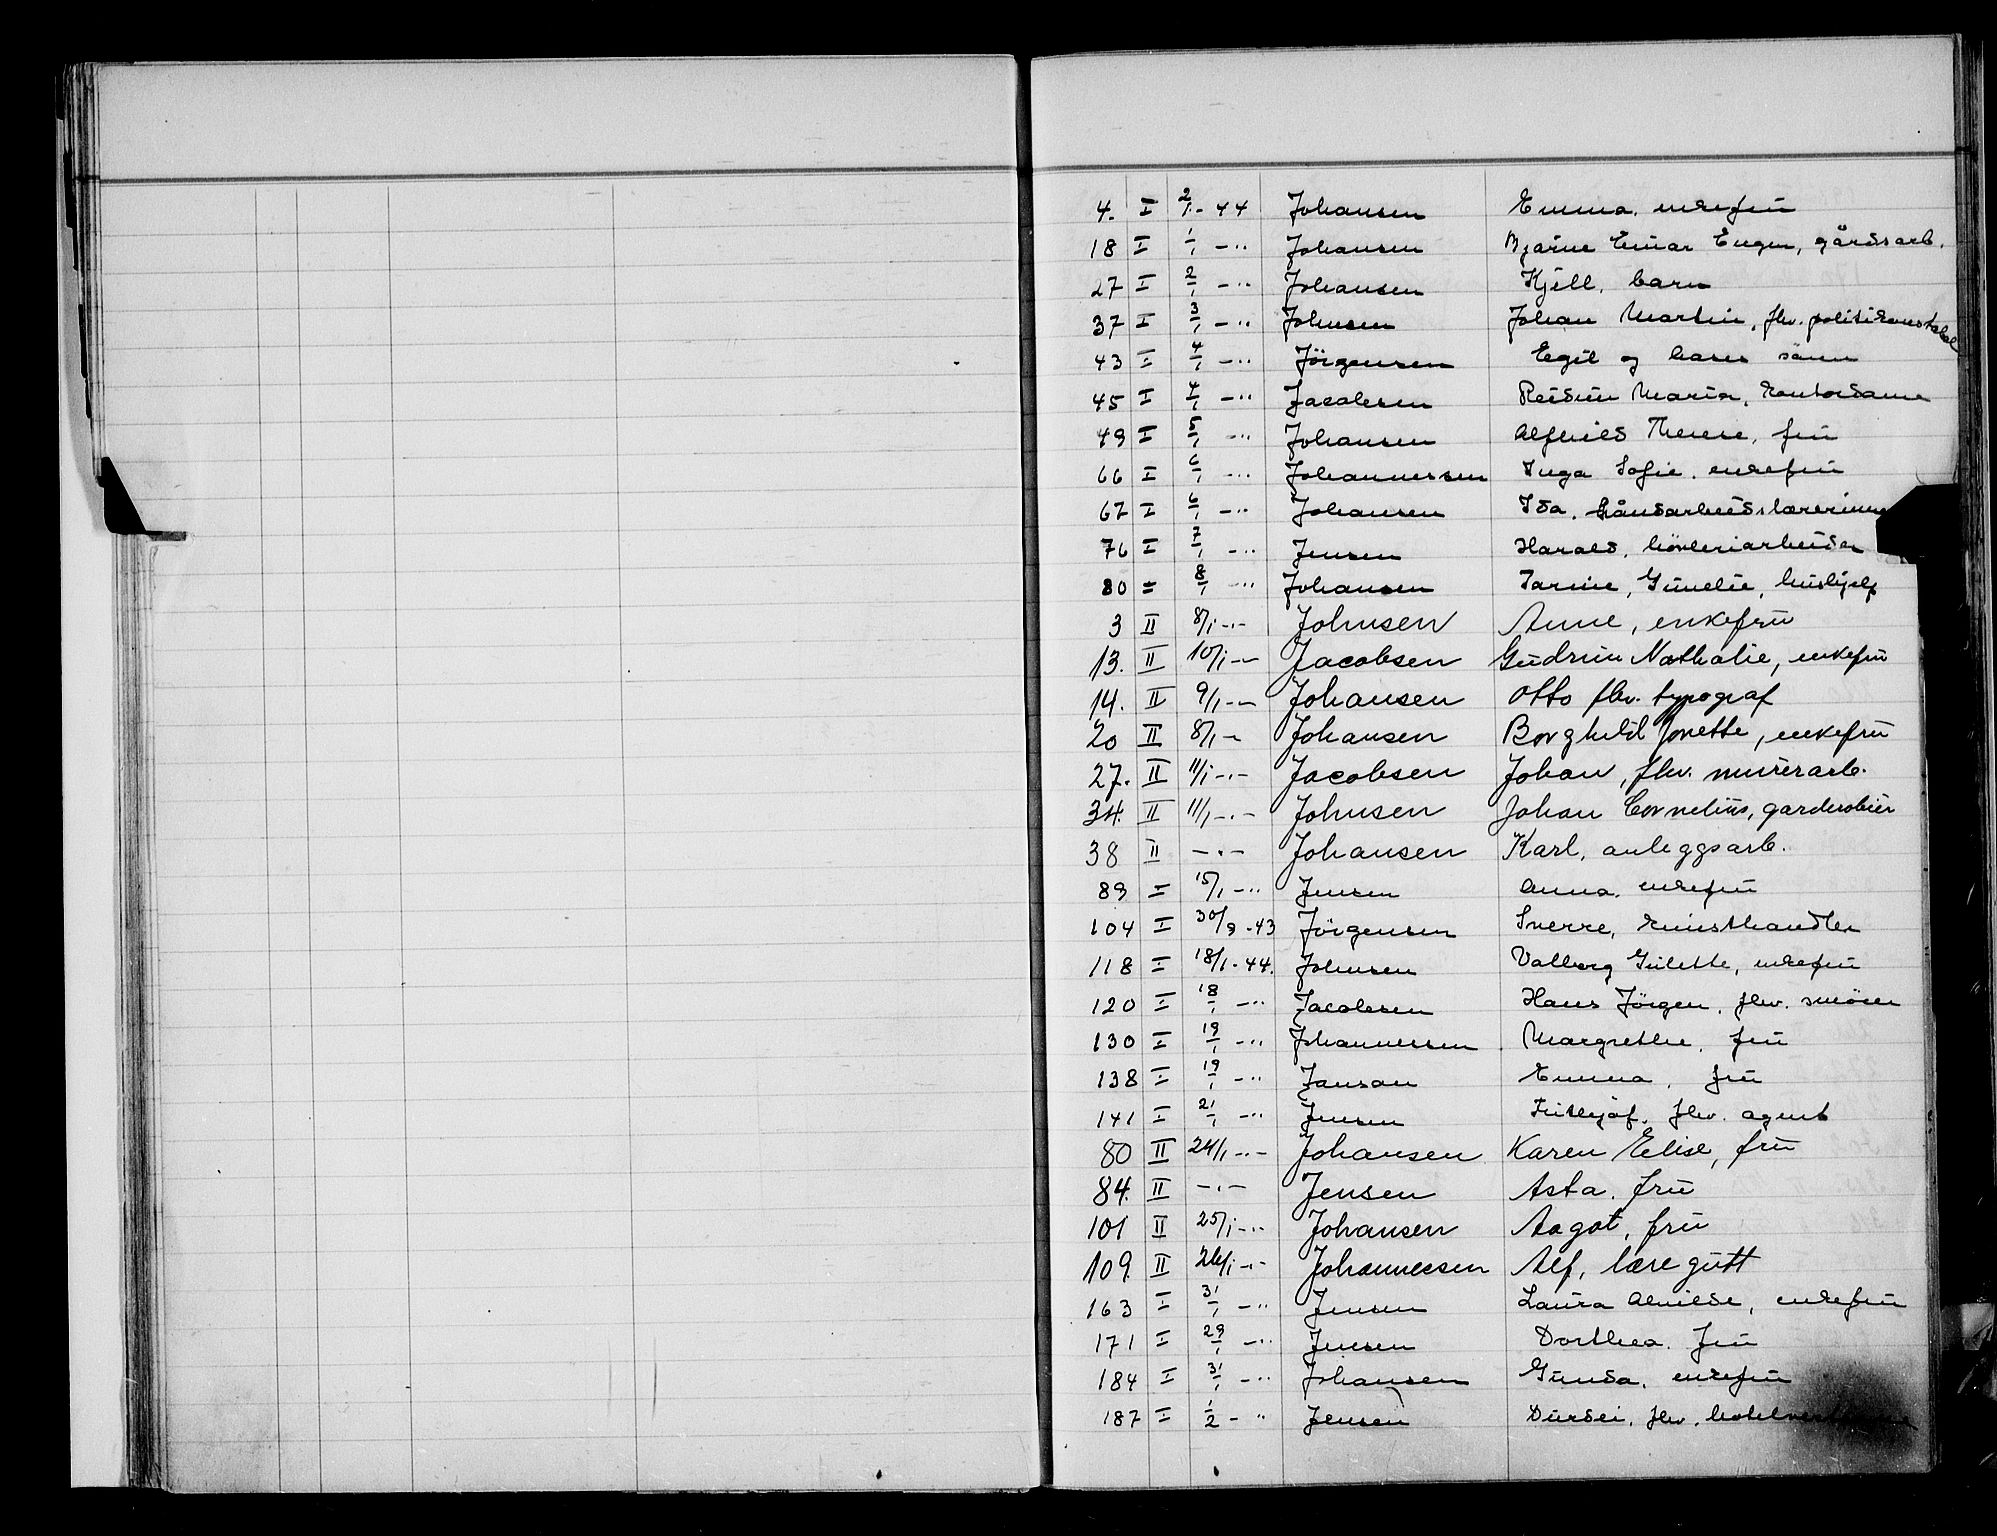 4. I 2/1 - 44 Johansen Emma, enkefrü
18 I 1/1 - " Johansen Bjarne Einar Eugen, gårdsarb.
27 I 2/1 - " Johansen Kjell, barn
37 I 3/1 - " Johnsen Johan Martin, fhv. politikonstabel
43 I 4/1 - " Jörgensen Egil og hans sønn
45 I 4/1 - " Jacobsen Reidun Maria, kontordame
49 I 5/1 - " Johansen Alfhild Therese, frü
66 I 6/1 - " Johannessen Inga Sofie, enkefrü
67 I 6/1 - " Johansen Ida, håndarbeidslærerinne
76 I 7/1 - " Jensen Harald, hövleriarbeider
80 = 8/1 - " Johansen Gunelie, hüshjelp
3 II 8/1 - " - Johnsen Anne, enkefrü
13. II 10/1 - - Jacobsen Güdrün Nathalie, enkefrü
14. II 9/1 - - Johansen Otto fhv. typograf
20 II 8/1 - Johansen Borghild Jonette, enkefrü
27. II 11/1 - " - Jacobsen Johan, fhv. mürerarb.
34. II 11/1 - " - Johnsen Johan Cornelius, garderobier
38 II - " - Johansen Karl, anleggsarb.
89 I 15/1 - " Jensen Anna, enkefrü
104 I 30/9 - 43 Jörgensen Sverre, künsthandler
118 I 18/1 - 44. Johnsen Valborg Gülette, enkefrü
120 I 18/1 - " Jacobsen Hans Jörgen, fhv. smörer
130 I 19/1 - " Johannessen Margrethe, frü
138 I 19/1 - " Janson Emma, frü
141 I 21/1 - " Jensen Frithjof, fhv. agent
80 II 24/1 - " - Johansen Karen Elise, frü
84. II - " - Jensen Asta, frü
101 II 25/1 - " Johansen Aagot, frü
109. II 26/1 - " - Johannessen Alf, læregütt
163 I 31/1 - " Jensen Laura Alvilde, enkefrü
171 I 29/1 - " Jensen Dorthea, frü
184 I 31/1 - " Johansen Günda, enkefrü
187 I 1/2 - " Jensen Dürdei, fhv.